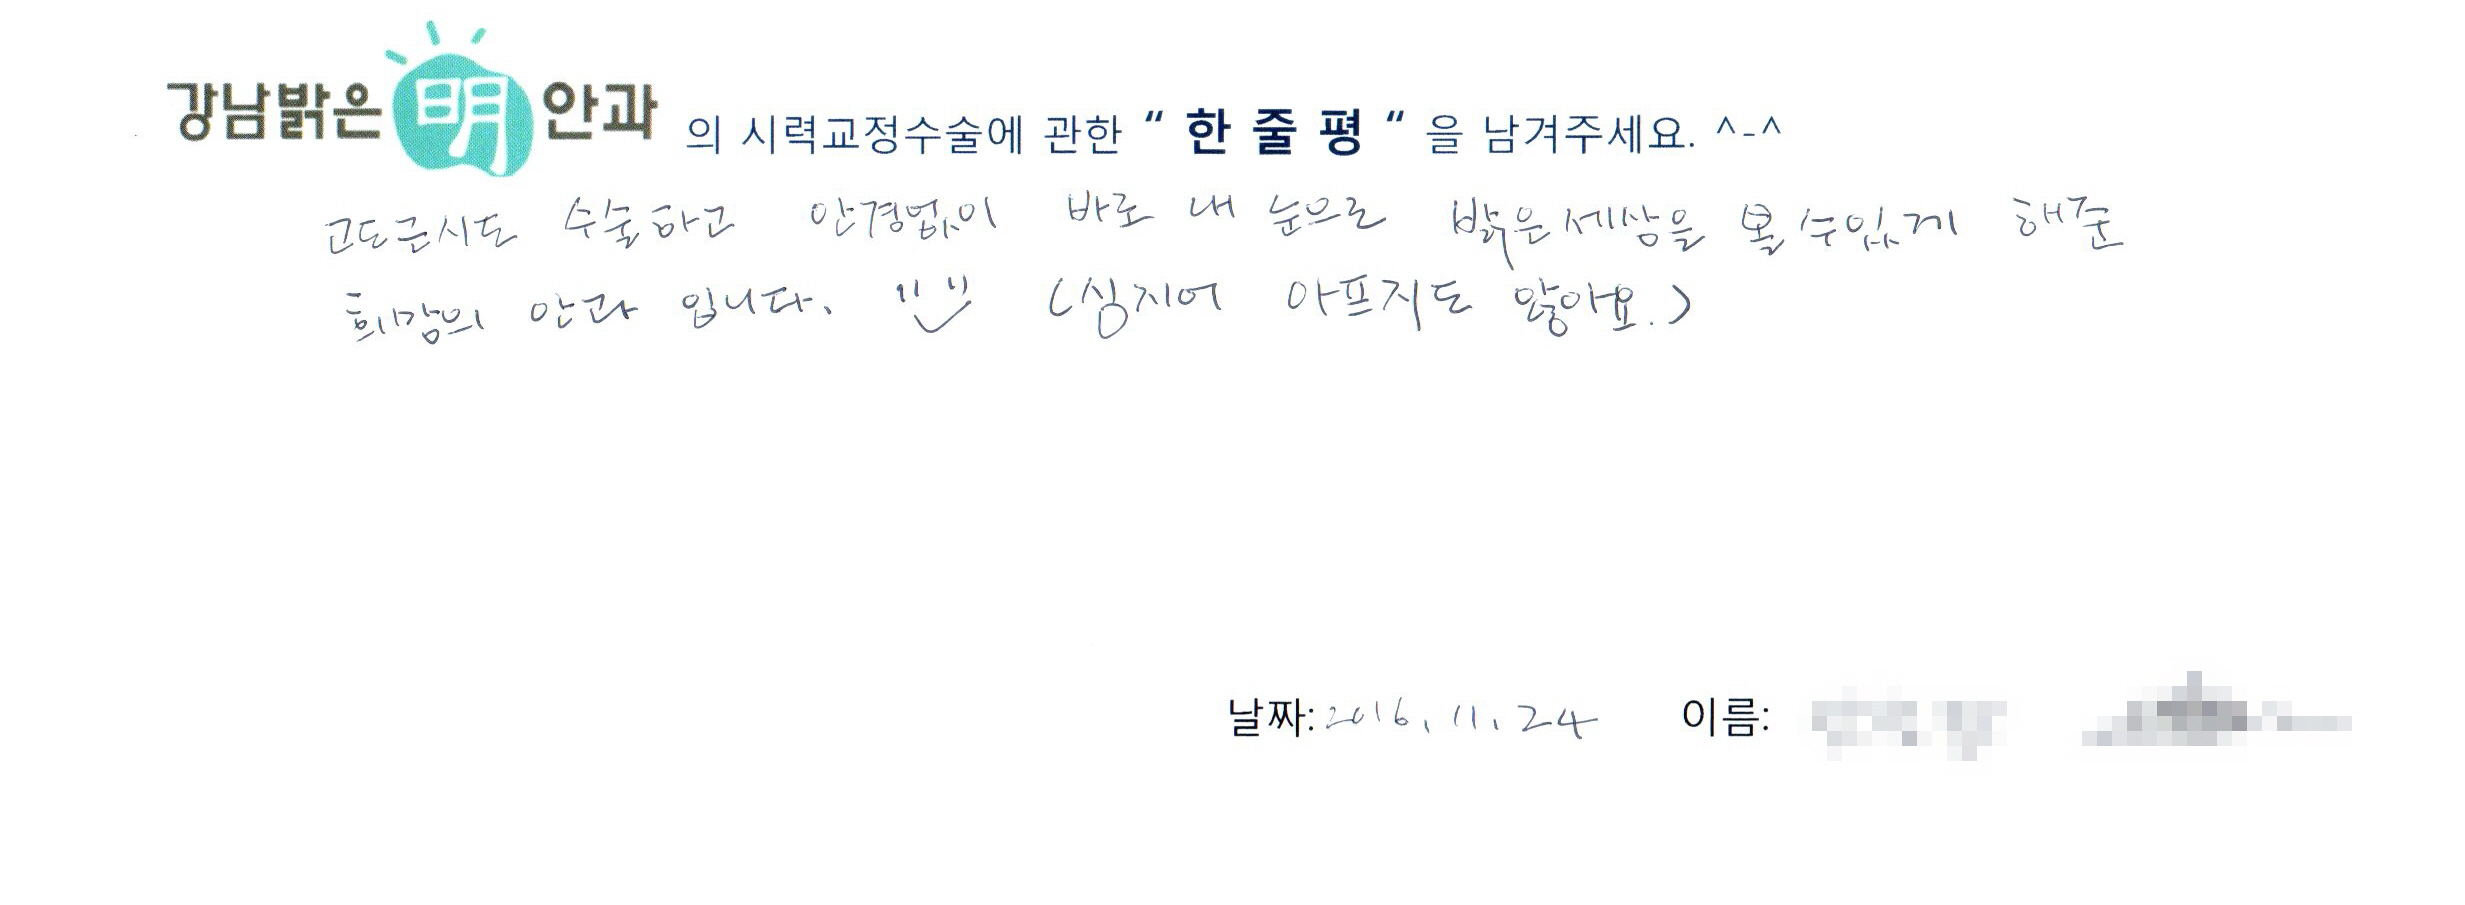 강남밝은 明 안과 의 시력교정수술에 관한 " 한 줄 평 " 을 남겨주세요. ^-^
고도근시도 수술하고 안경없이 바로 내 눈으로 밝은세상을 볼수있게 해준
희망의 안과 입니다. (심지어 아프지도 않아요.)
날짜: 2016. 11. 24 이름: